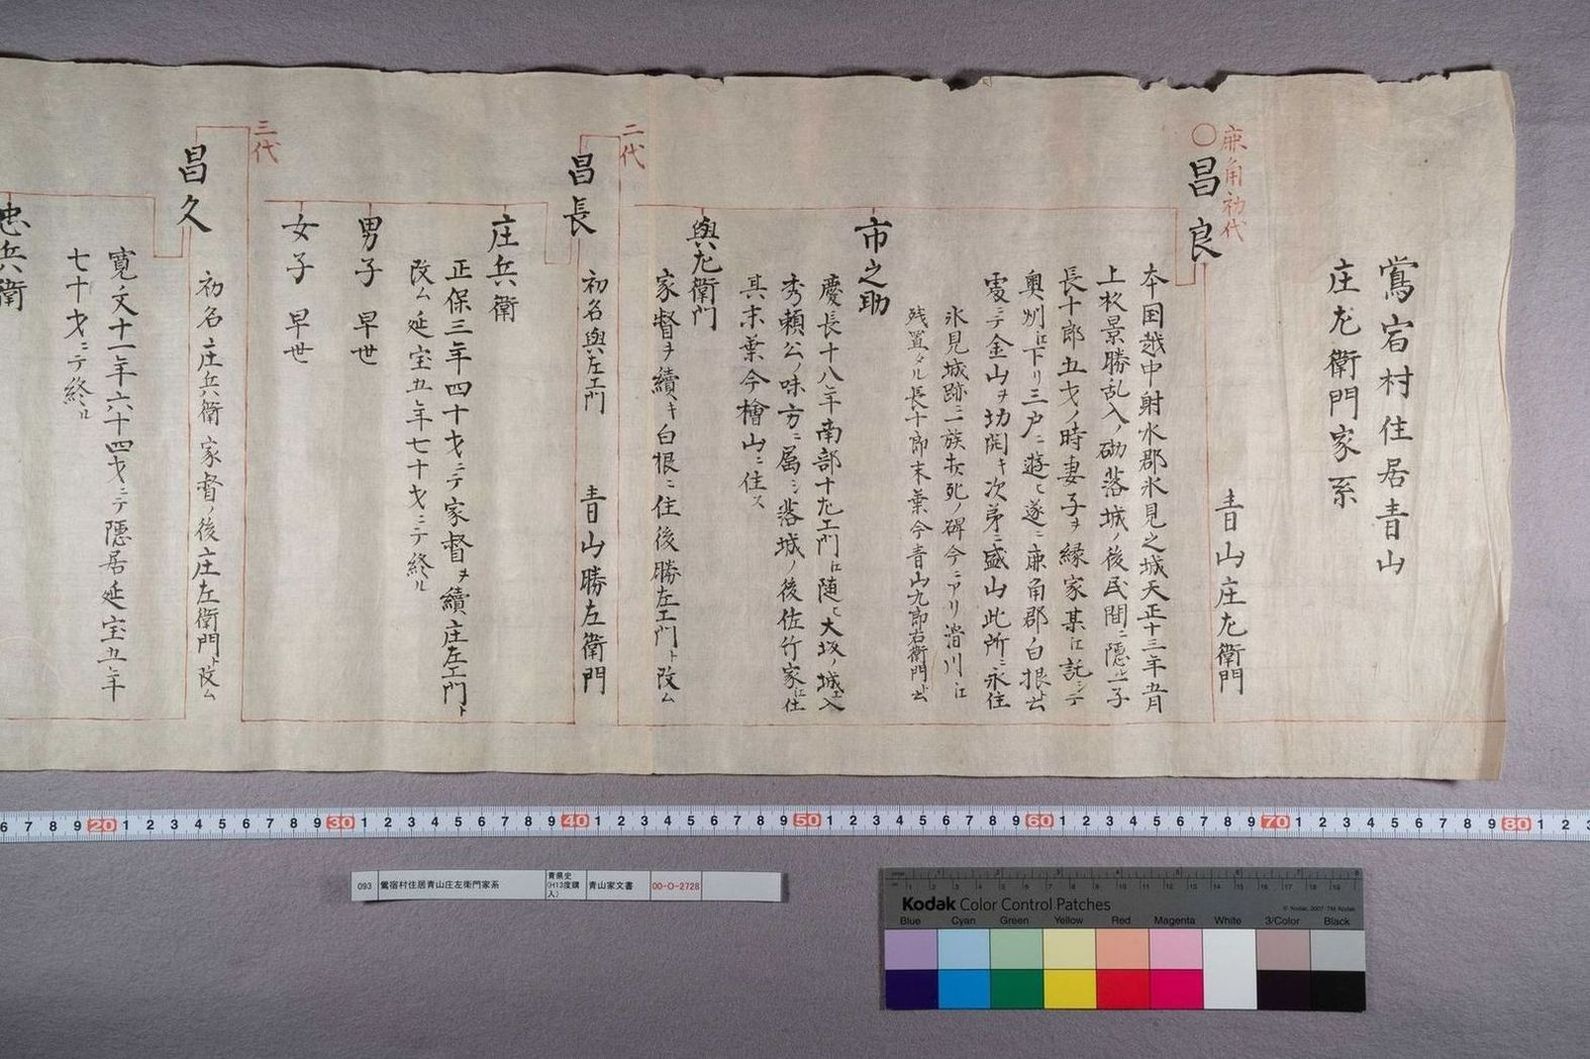 鴬宿村住居青山
庄左衛門家系
鹿角初代
〇昌良
青山庄左衛門
本国越中射水郡氷見之城天正十三年五月
上杉景勝乱入ノ砌落城ノ後民間ニ隠ㇾ子
長十郎五才ノ時妻子ヲ縁家某江託シテ
奥州江下リ三戸ニ遊ヒ遂ニ鹿角郡白根ト云
處ニテ金山ヲ切開キ次第ニ盛山此所ニ永住
氷見城跡ニ一族共死ノ碑今ニアリ滑川江
残置タル長十郎末葉今青山九郎右衛門ト云
市之助
慶長十八年南部十左エ門江随ヒ大坂ノ城エ入
秀頼公ノ味方ニ属シ落城ノ後佐竹家江仕
其末葉今檜山ニ住ス
與左衛門
家督ヲ續キ白根ニ住後勝左エ門ト改ム
二代
昌長
初名與左エ門
青山勝左衛門
庄兵衛
正保三年四十才ニテ家督ヲ續庄左エ門ト
改ム延宝五年七十才ニテ終ル
男子 早世
女子 早世
三代
昌久
初名庄兵衛家督ノ後庄左衛門ト改ム
寛文十一年六十四才ニテ隠居延宝五年
七十才ニテ終ル
忠兵衛
6 7 8 9 20 1 2 3 4 5 6 7 8 9 30 1 2 3 4 5 6 7 8 9 40 1 2 3 4 5 6 7 8 9 50 1 2 3 4 5 6 7 8 9 60 1 2 3 4 5 6 7 8 9 70 1 2 3 4 5 6 7 8 9 80 1 2 3
093 鴬宿村住居青山庄左衛門家系 青県史(H13度購入) 青山家文書 00-O-2728
Kodak Color Control Patches
© Kodak, 2007 TM: Kodak
Blue Cyan Green Yellow Red Magenta White 3/Color Black